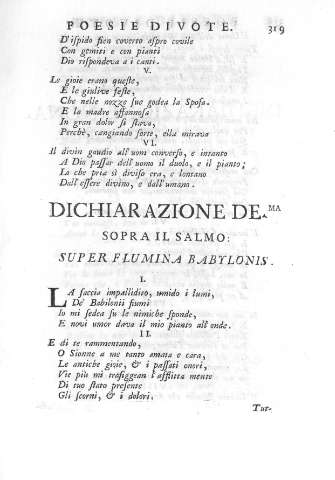 POESIE DIVOTE. 319
D'ispido fien coverto aspro covile
Con gemiti e con pianti
Dio rispondeva a i canti.
V.
Le gioie erano queste,
E le giulive feste,
Che nelle nozze sue godea la Sposa.
E la madre affannosa
In gran dolor si stava,
Perchè, cangiando sorte, ella mirava
VI.
Il divin gaudio all'uom converso, e intanto
A Dio passar dell'uomo il duolo, e il pianto;
La che pria sì diviso era, e lontano
Dall'essere divino, e dall'umano.
DICHIARAZIONE DE.MA
SOPRA IL SALMO:
SUPER FLUMINA BABYLONIS.
I.
LA faccia impallidito, umido i lumi,
De' Babilonii fiumi
Io mi sedea su le nimiche sponde,
E novi umor dava il mio pianto all'onde.
II.
E di te rammentando,
O Sionne a me tanto amata e cara,
Le antiche gioie, & i passati onori,
Vie più mi trafiggean l'afflitta mente
Di tuo stato presente
Gli scorni, & i dolori.
Tut-